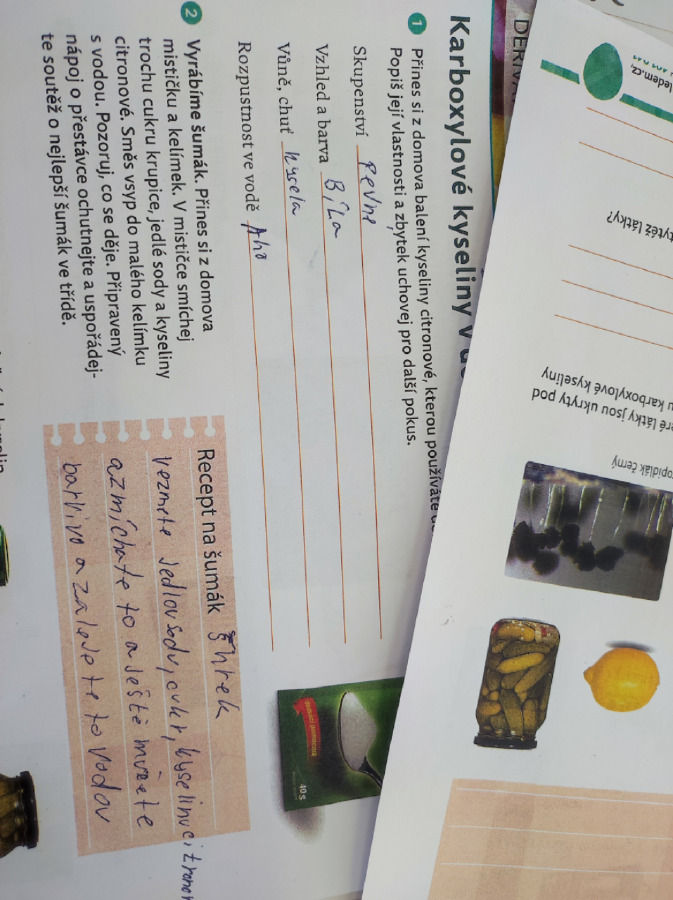 DERIVÁ
Karboxylové kyseliny v
1 Přines si z domova balení kyseliny citronové, kterou používáte
Popiš její vlastnosti a zbytek uchovej pro další pokus.
Skupenství Pevne
Vzhled a barva Bíla
Vůně, chuť kysela
Rozpustnost ve vodě Aho
2 Vyrábíme šumák. Přines si z domova
mističku a kelímek. V mističce smíchej
trochu cukru krupice, jedlé sody a kyseliny
citronové. Směs vsyp do malého kelímku
s vodou. Pozoruj, co se děje. Připravený
nápoj o přestávce ochutnejte a uspořádej-
te soutěž o nejlepší šumák ve třídě.
Recept na šumák Shrek
vezmete Jedlou sodu, cukr, kyselinu citronov
a zmíchate to a Ještě můžete
barvivo a zalejete to vodou
40 g
ledem.cz,
tytéž látky?
eré látky jsou ukryty pod
u karboxylové kyseliny
opidlák černý